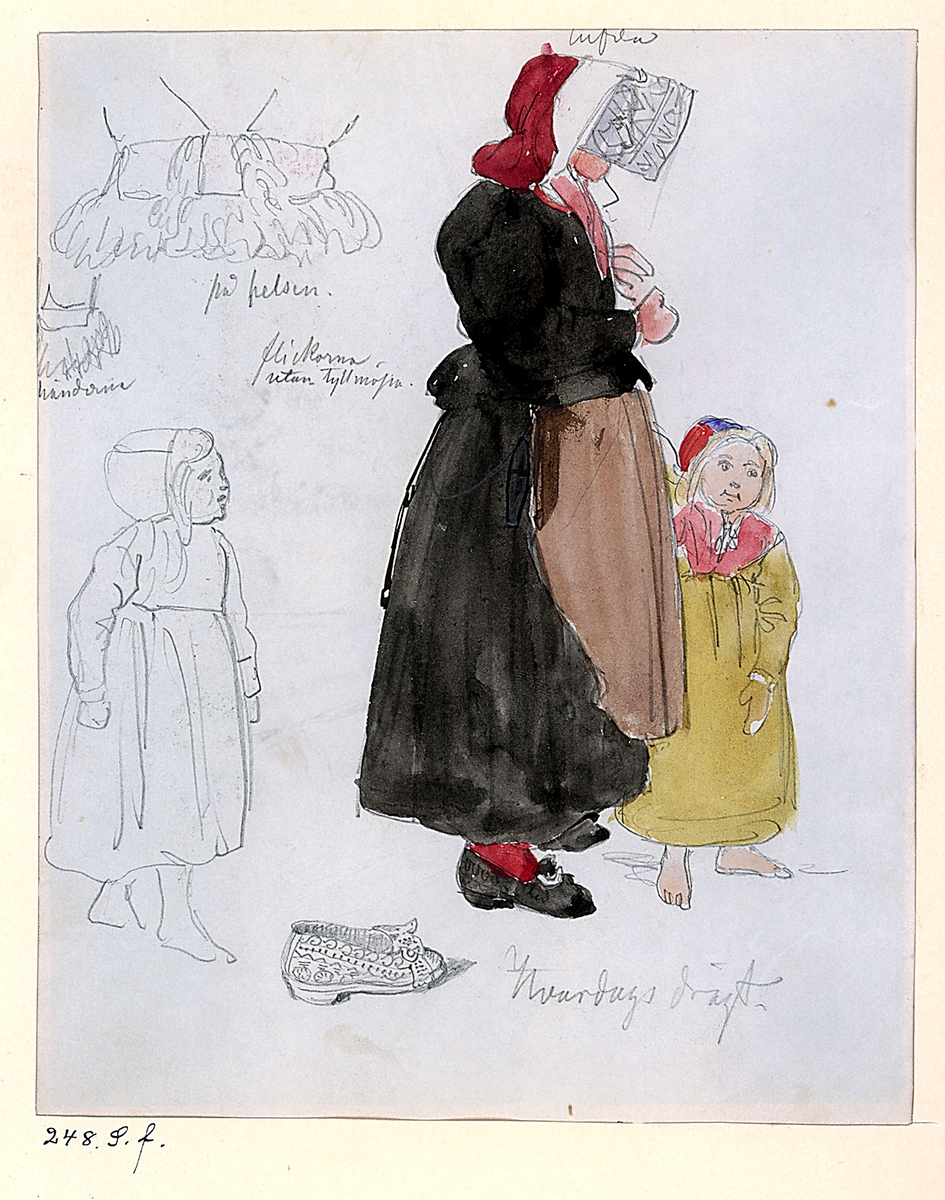 på pelsen.
händerna
flickorna
utan tyllmössa.
Hvardags drägt.
248. S. f.